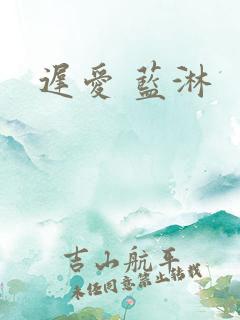 遲愛 藍淋
吉山航平
未经同意禁止转载